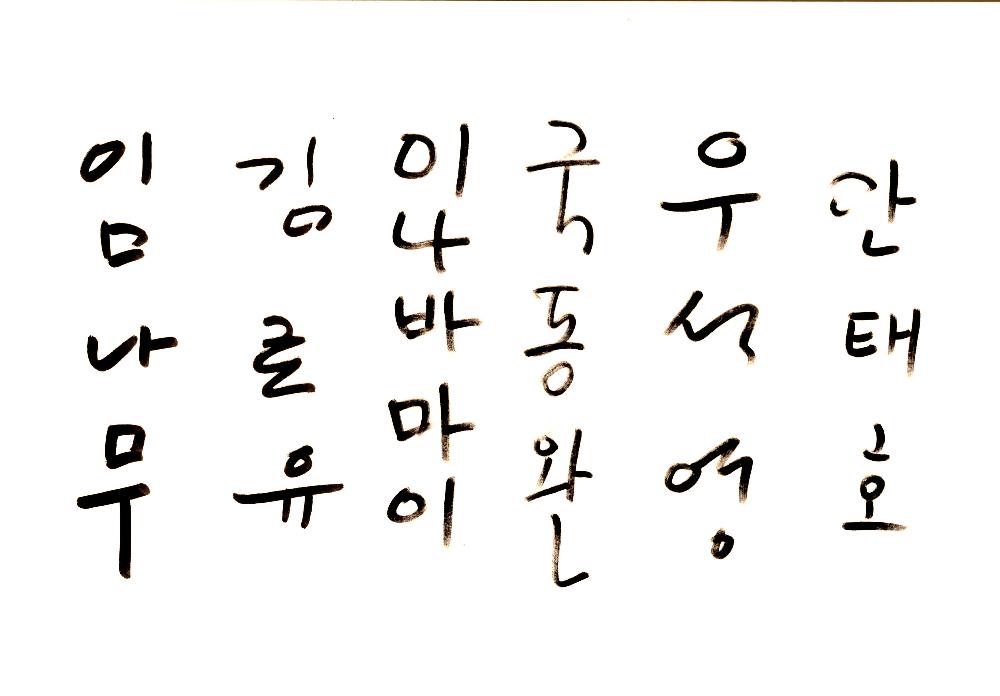 임나무
김른유
이나바마이
국동완
우석영
안태호